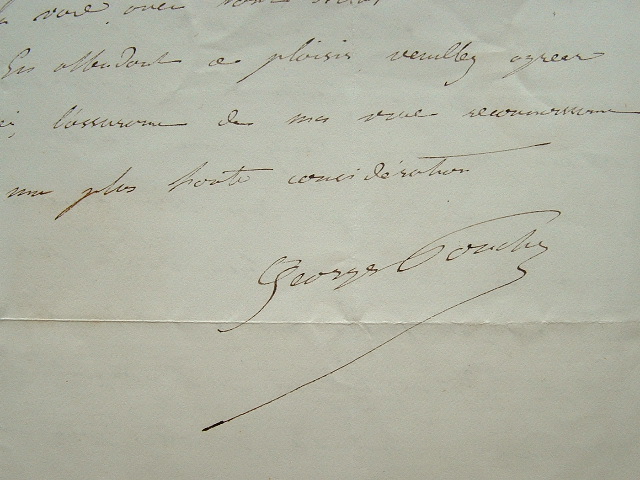 voir, avec
En attendant ce plaisir, veuillez agréer
l'assurance de ma vive reconnaissance
ma plus haute considération
Georges Pouchet